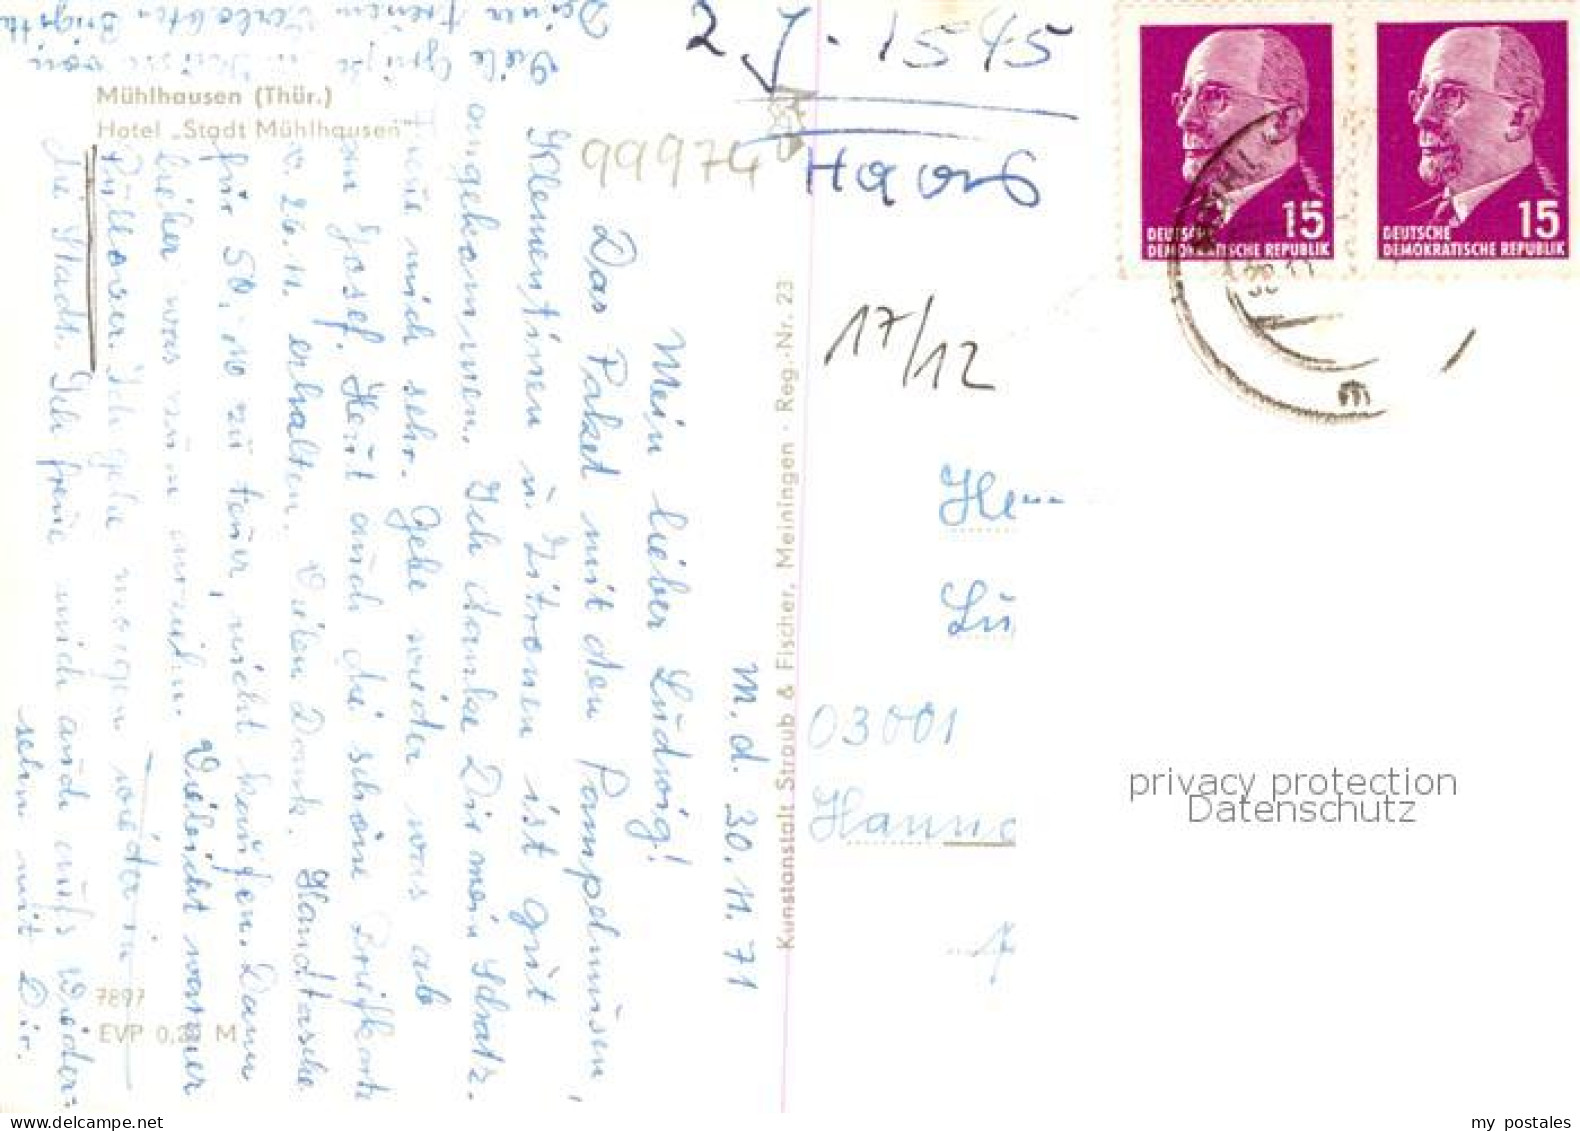 Mühlhausen (Thür.)
Hotel „Stadt Mühlhausen"
7897
EVP 0,20 M
Kunstanstalt Straub & Fischer, Meiningen · Reg.-Nr. 23
M. d. 30. 11. 71
Mein lieber Ludwig!
Das Paket mit den Pampelmusen,
Klementinen u. Zitronen ist gut
angekommen. Ich danke Dir mein Schatz.
Freue mich sehr. Gebe wieder was ab
am Josef. Heut auch die schöne Briefkarte
v. 26. 11. erhalten. Vielen Dank. Handtasche
für 50,- M zu teuer, nicht kaufen. Dann
lieber was zum anziehn. Vielleicht warmer
Pullover. Ich gehe morgen wieder in
die Stadt. Ich freue mich auch aufs Wieder-
sehn mit Dir.
Viele Grüße u. Küsse von
Deiner treuen Verlobten Brigitte
2 J. 1545
99974
17/12
Herrn
Lu
03001
Hanno
DEUTSCHE
DEMOKRATISCHE REPUBLIK
15
DEUTSCHE
DEMOKRATISCHE REPUBLIK
15
MÜHL
30.11
m
privacy protection
Datenschutz
my postales